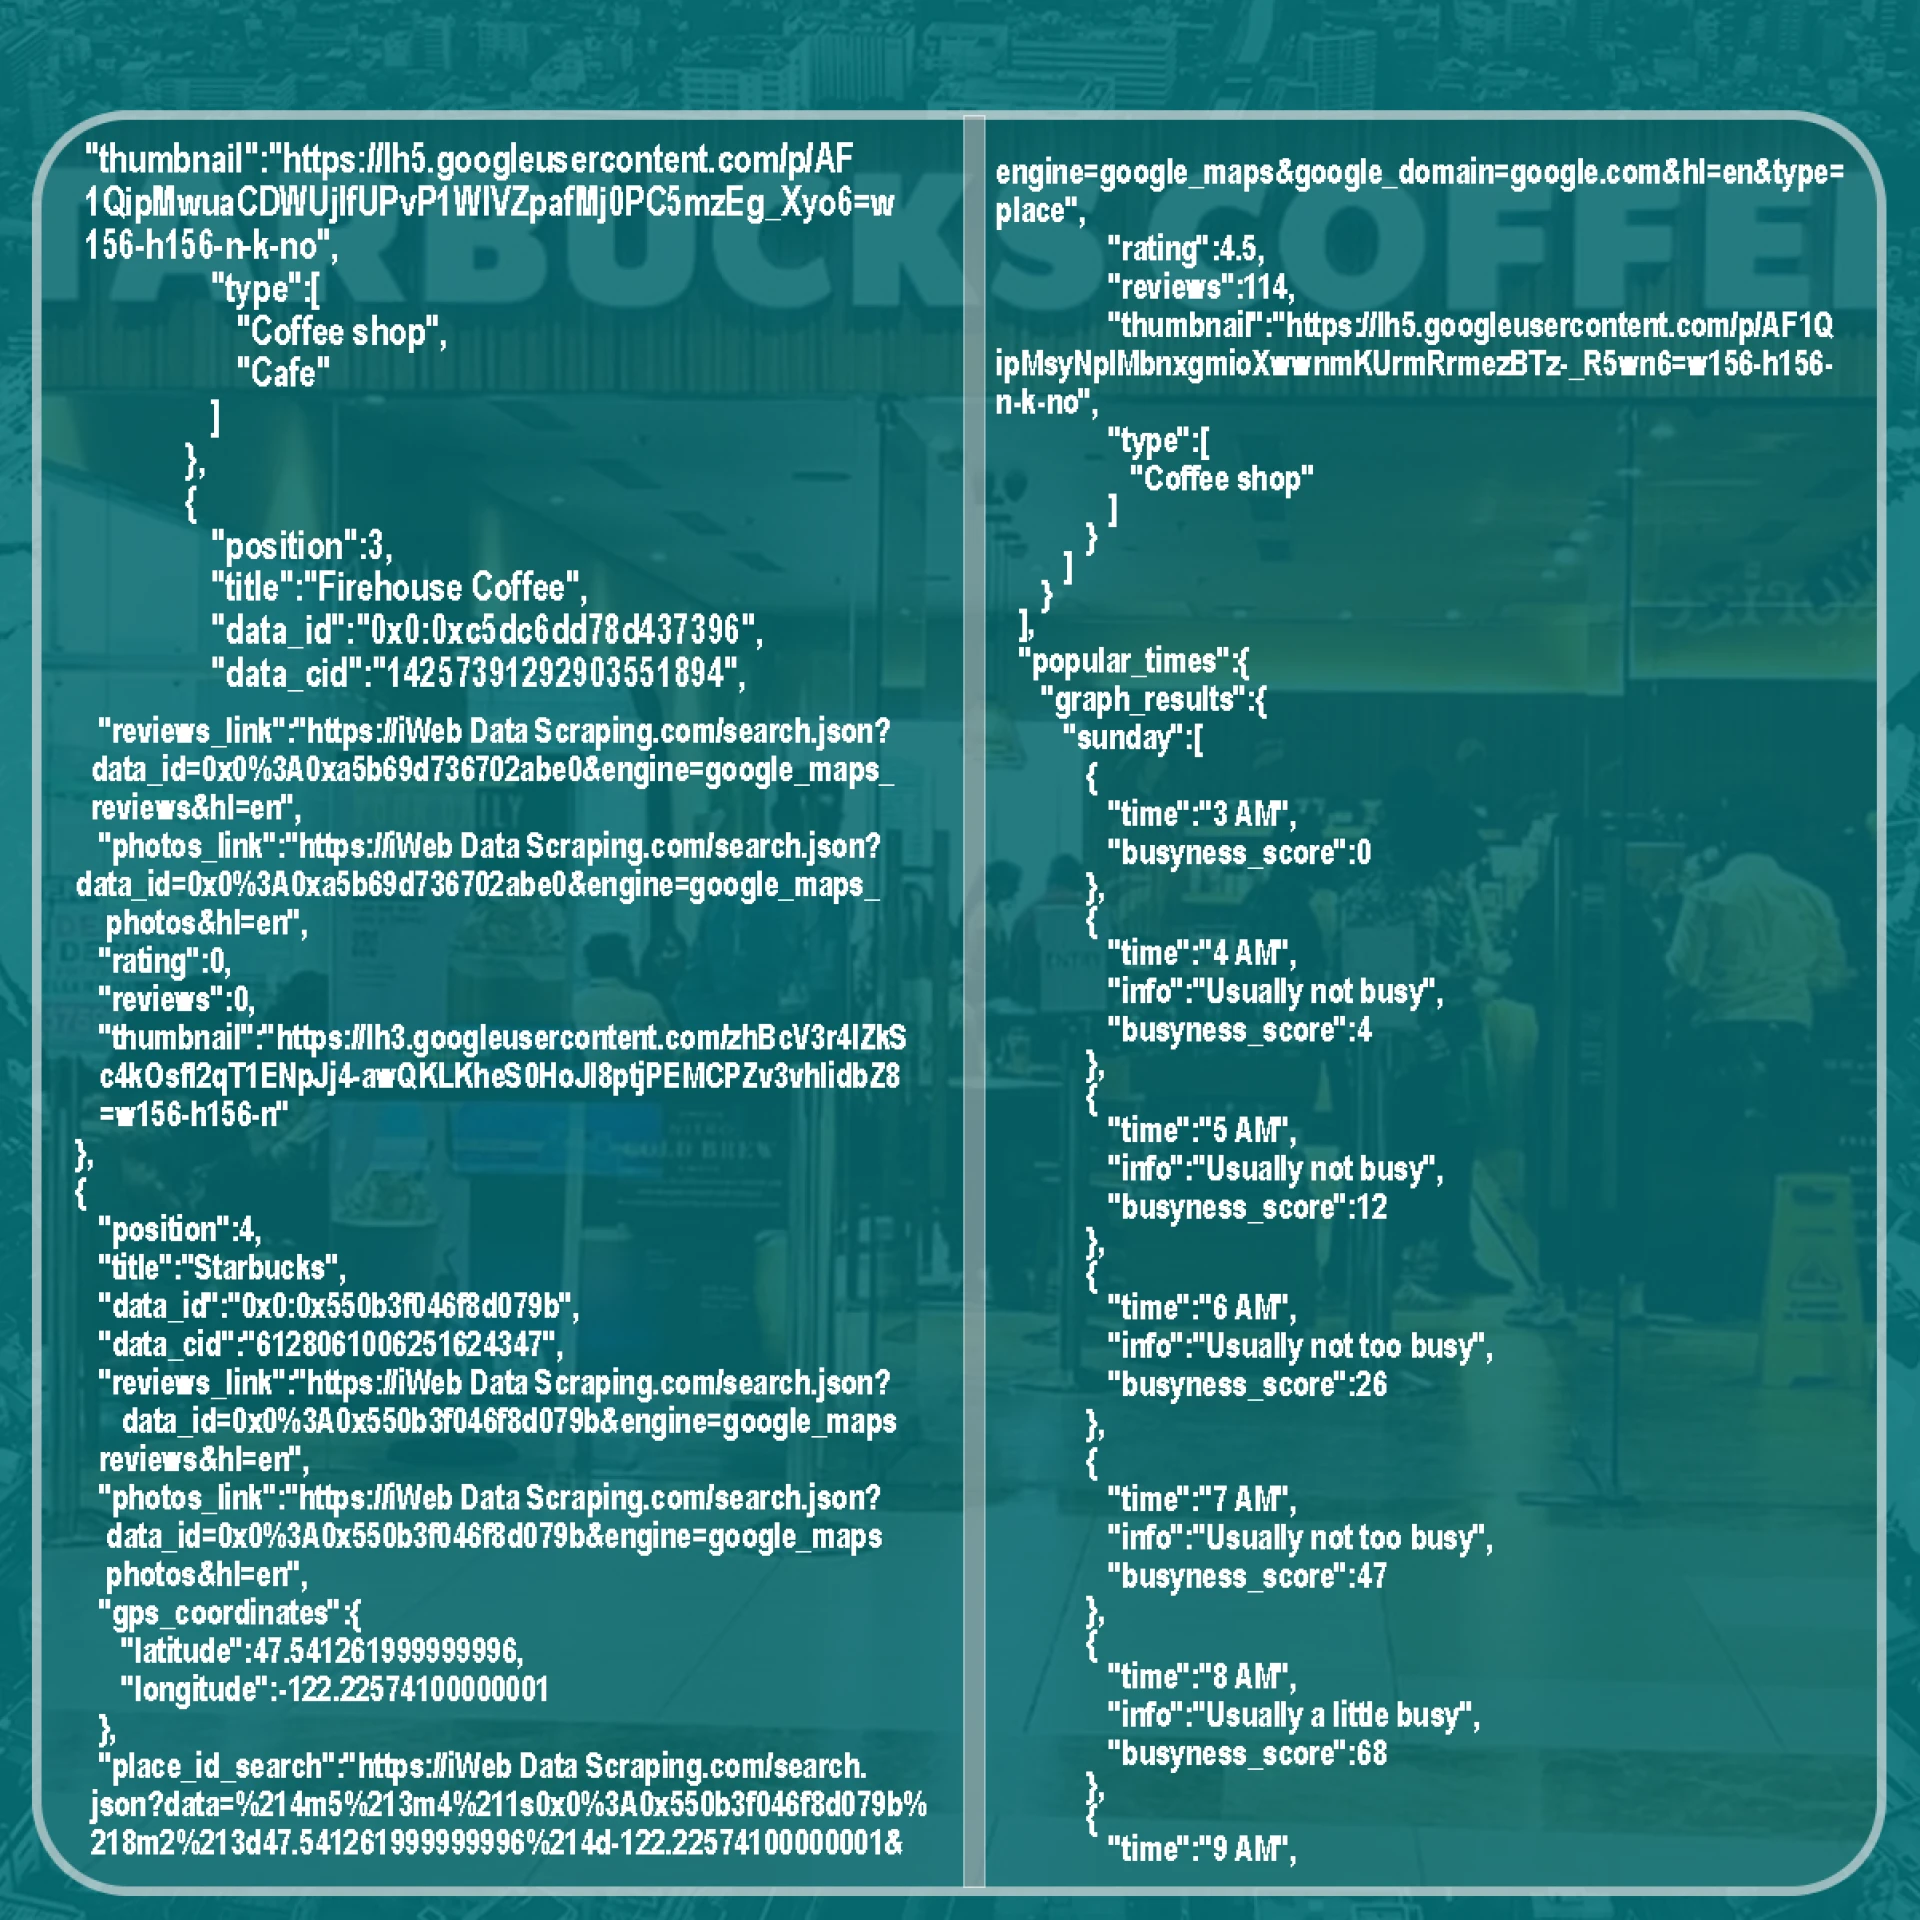 "thumbnail":"https://lh5.googleusercontent.com/p/AF
1QipMwuaCDWUjlfUPvP1WIVZpafMj0PC5mzEg_Xyo6=w
156-h156-n-k-no",
"type":[
"Coffee shop",
"Cafe"
]
},
{
"position":3,
"title":"Firehouse Coffee",
"data_id":"0x0:0xc5dc6dd78d437396",
"data_cid":"14257391292903551894",
"reviews_link":"https://iWeb Data Scraping.com/search.json?
data_id=0x0%3A0xa5b69d736702abe0&engine=google_maps_
reviews&hl=en",
"photos_link":"https://iWeb Data Scraping.com/search.json?
data_id=0x0%3A0xa5b69d736702abe0&engine=google_maps_
photos&hl=en",
"rating":0,
"reviews":0,
"thumbnail":"https://lh3.googleusercontent.com/zhBcV3r4lZkS
c4kOsfl2qT1ENpJj4-awQKLKheS0HoJl8ptjPEMCPZv3vhlidbZ8
=w156-h156-n"
},
{
"position":4,
"title":"Starbucks",
"data_id":"0x0:0x550b3f046f8d079b",
"data_cid":"6128061006251624347",
"reviews_link":"https://iWeb Data Scraping.com/search.json?
data_id=0x0%3A0x550b3f046f8d079b&engine=google_maps
reviews&hl=en",
"photos_link":"https://iWeb Data Scraping.com/search.json?
data_id=0x0%3A0x550b3f046f8d079b&engine=google_maps
photos&hl=en",
"gps_coordinates":{
"latitude":47.541261999999996,
"longitude":-122.22574100000001
},
"place_id_search":"https://iWeb Data Scraping.com/search.
json?data=%214m5%213m4%211s0x0%3A0x550b3f046f8d079b%
218m2%213d47.541261999999996%214d-122.22574100000001&
engine=google_maps&google_domain=google.com&hl=en&type=
place",
"rating":4.5,
"reviews":114,
"thumbnail":"https://lh5.googleusercontent.com/p/AF1Q
ipMsyNplMbnxgmioXwwnmKUrmRrmezBTz-_R5wn6=w156-h156-
n-k-no",
"type":[
"Coffee shop"
]
}
]
}
],
"popular_times":{
"graph_results":{
"sunday":[
{
"time":"3 AM",
"busyness_score":0
},
{
"time":"4 AM",
"info":"Usually not busy",
"busyness_score":4
},
{
"time":"5 AM",
"info":"Usually not busy",
"busyness_score":12
},
{
"time":"6 AM",
"info":"Usually not too busy",
"busyness_score":26
},
{
"time":"7 AM",
"info":"Usually not too busy",
"busyness_score":47
},
{
"time":"8 AM",
"info":"Usually a little busy",
"busyness_score":68
},
{
"time":"9 AM",
TARBUCKS COFFEE
COLD BREW